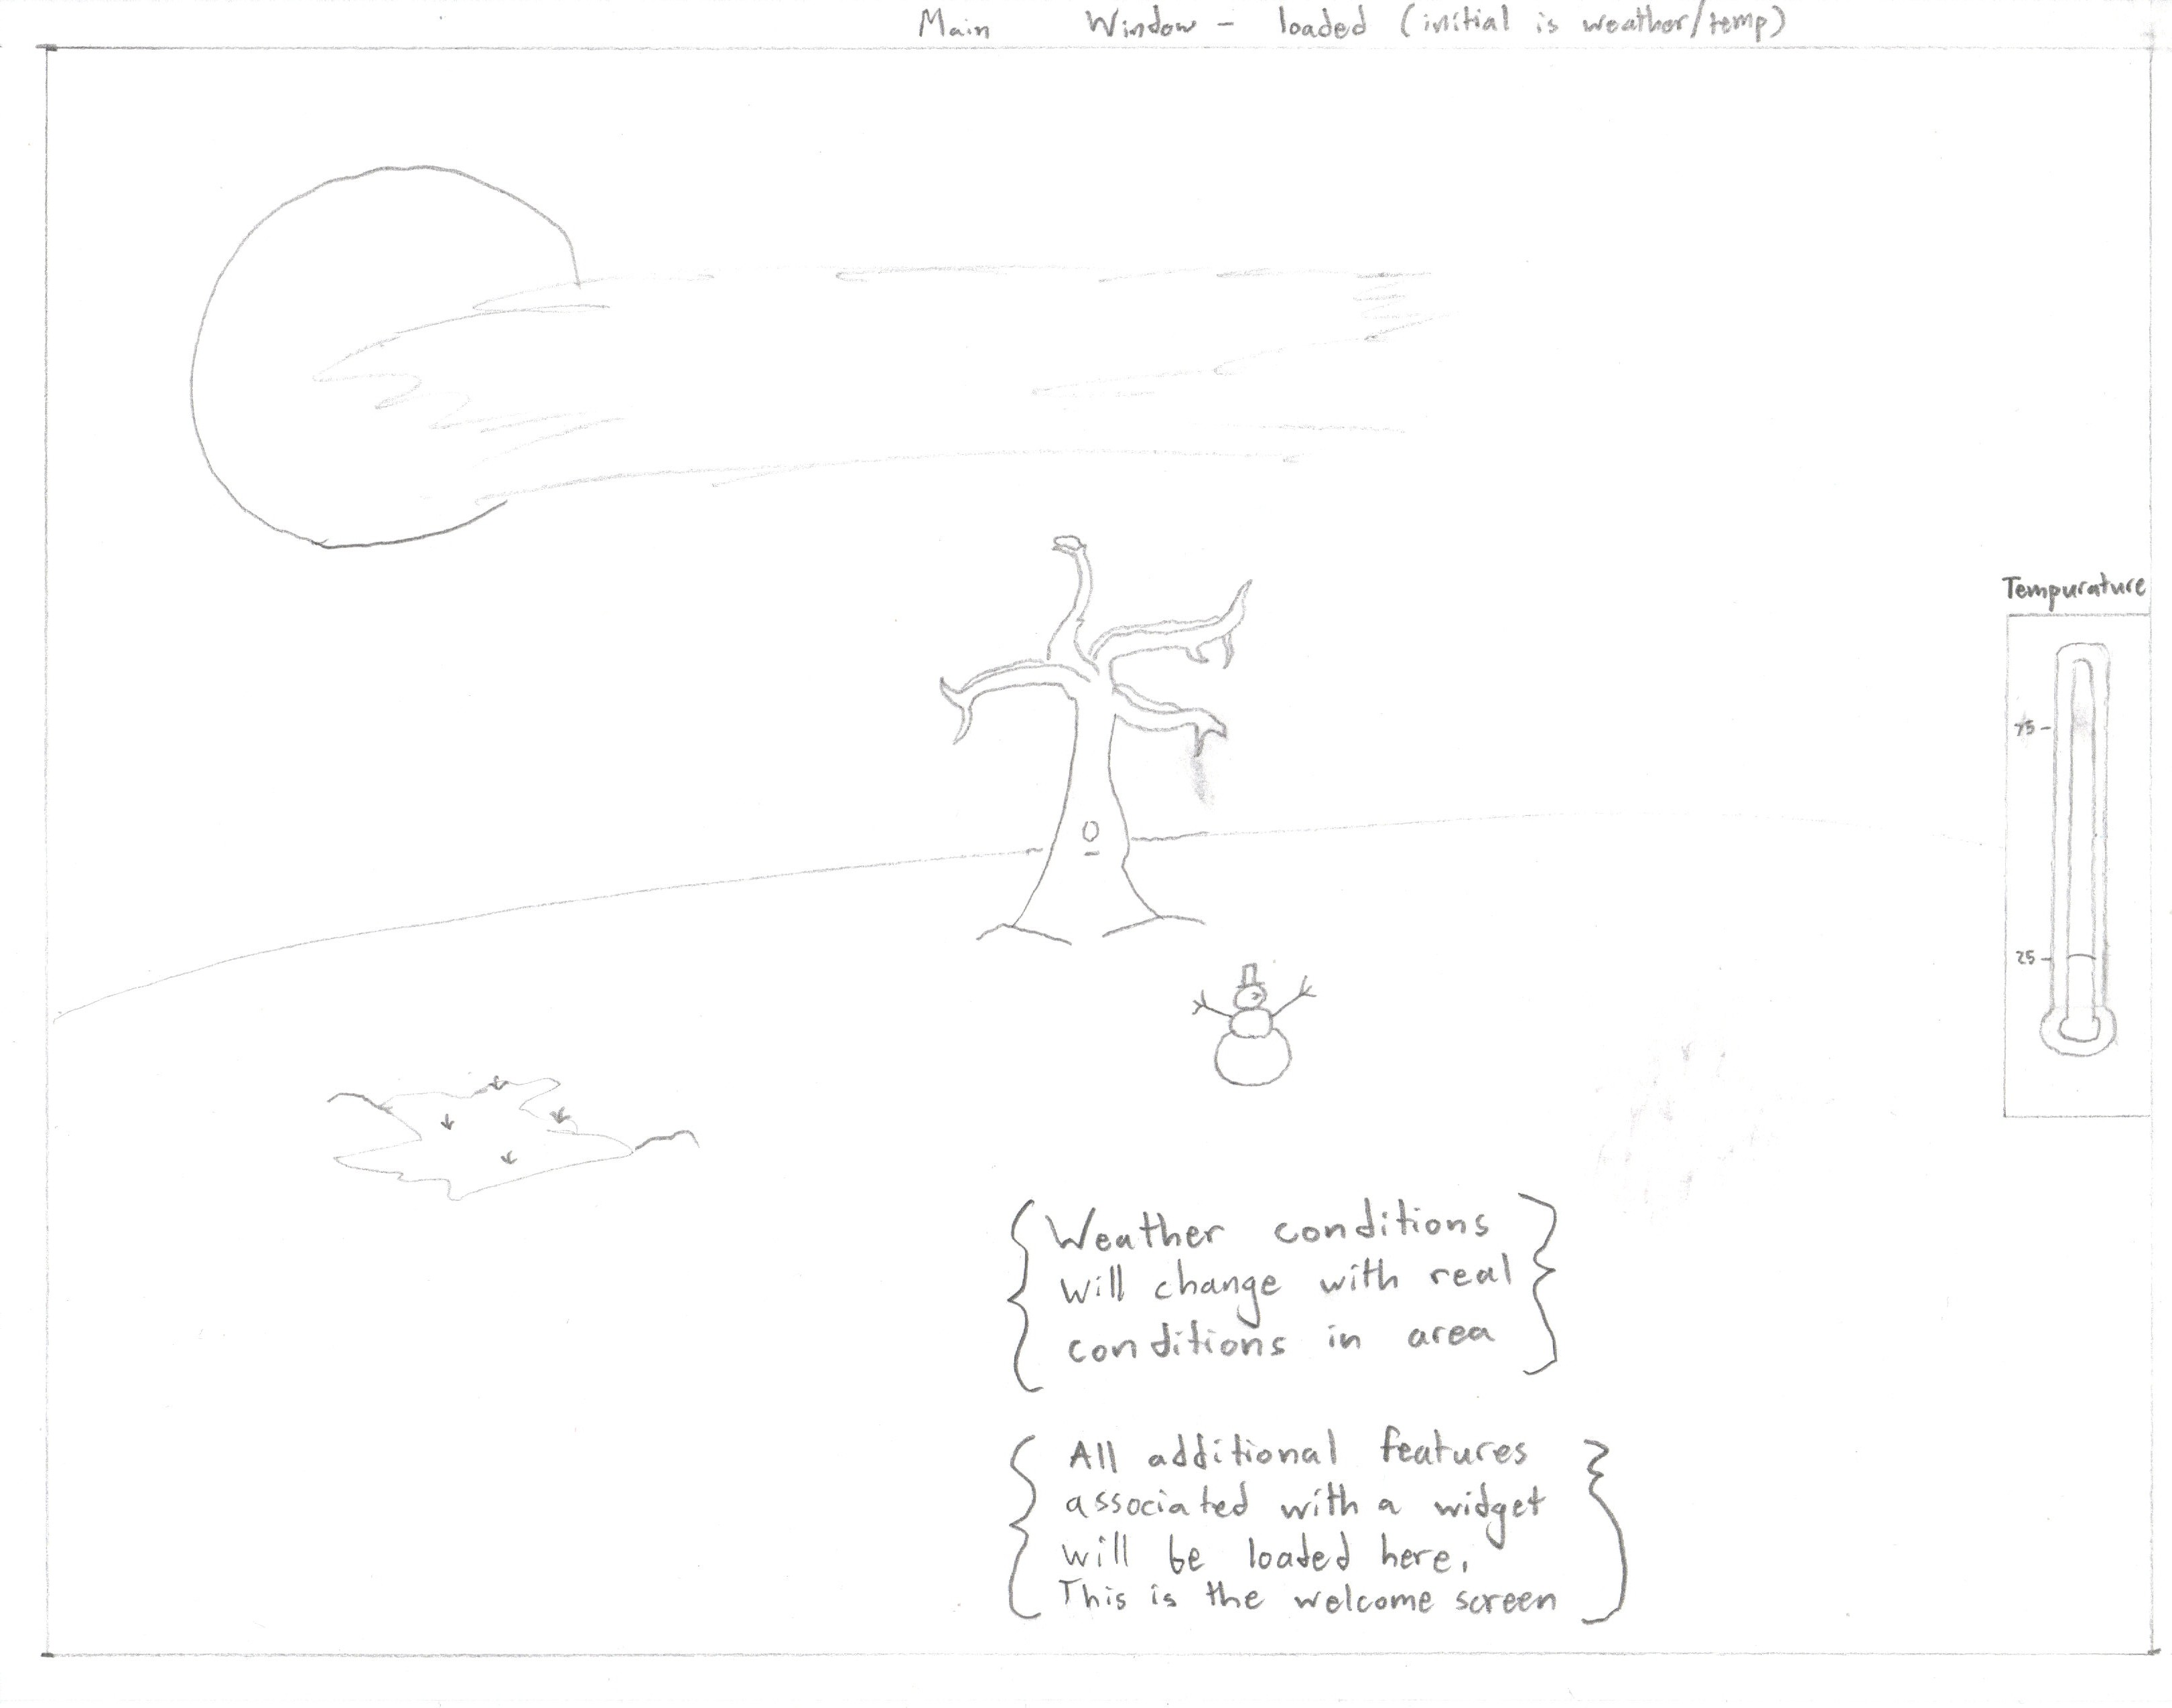 Main Window - loaded (initial is weather/temp)
Tempurature
75 -
25 -
{ Weather conditions }
will change with real
conditions in area
{ All additional features }
associated with a widget
will be loaded here.
This is the welcome screen